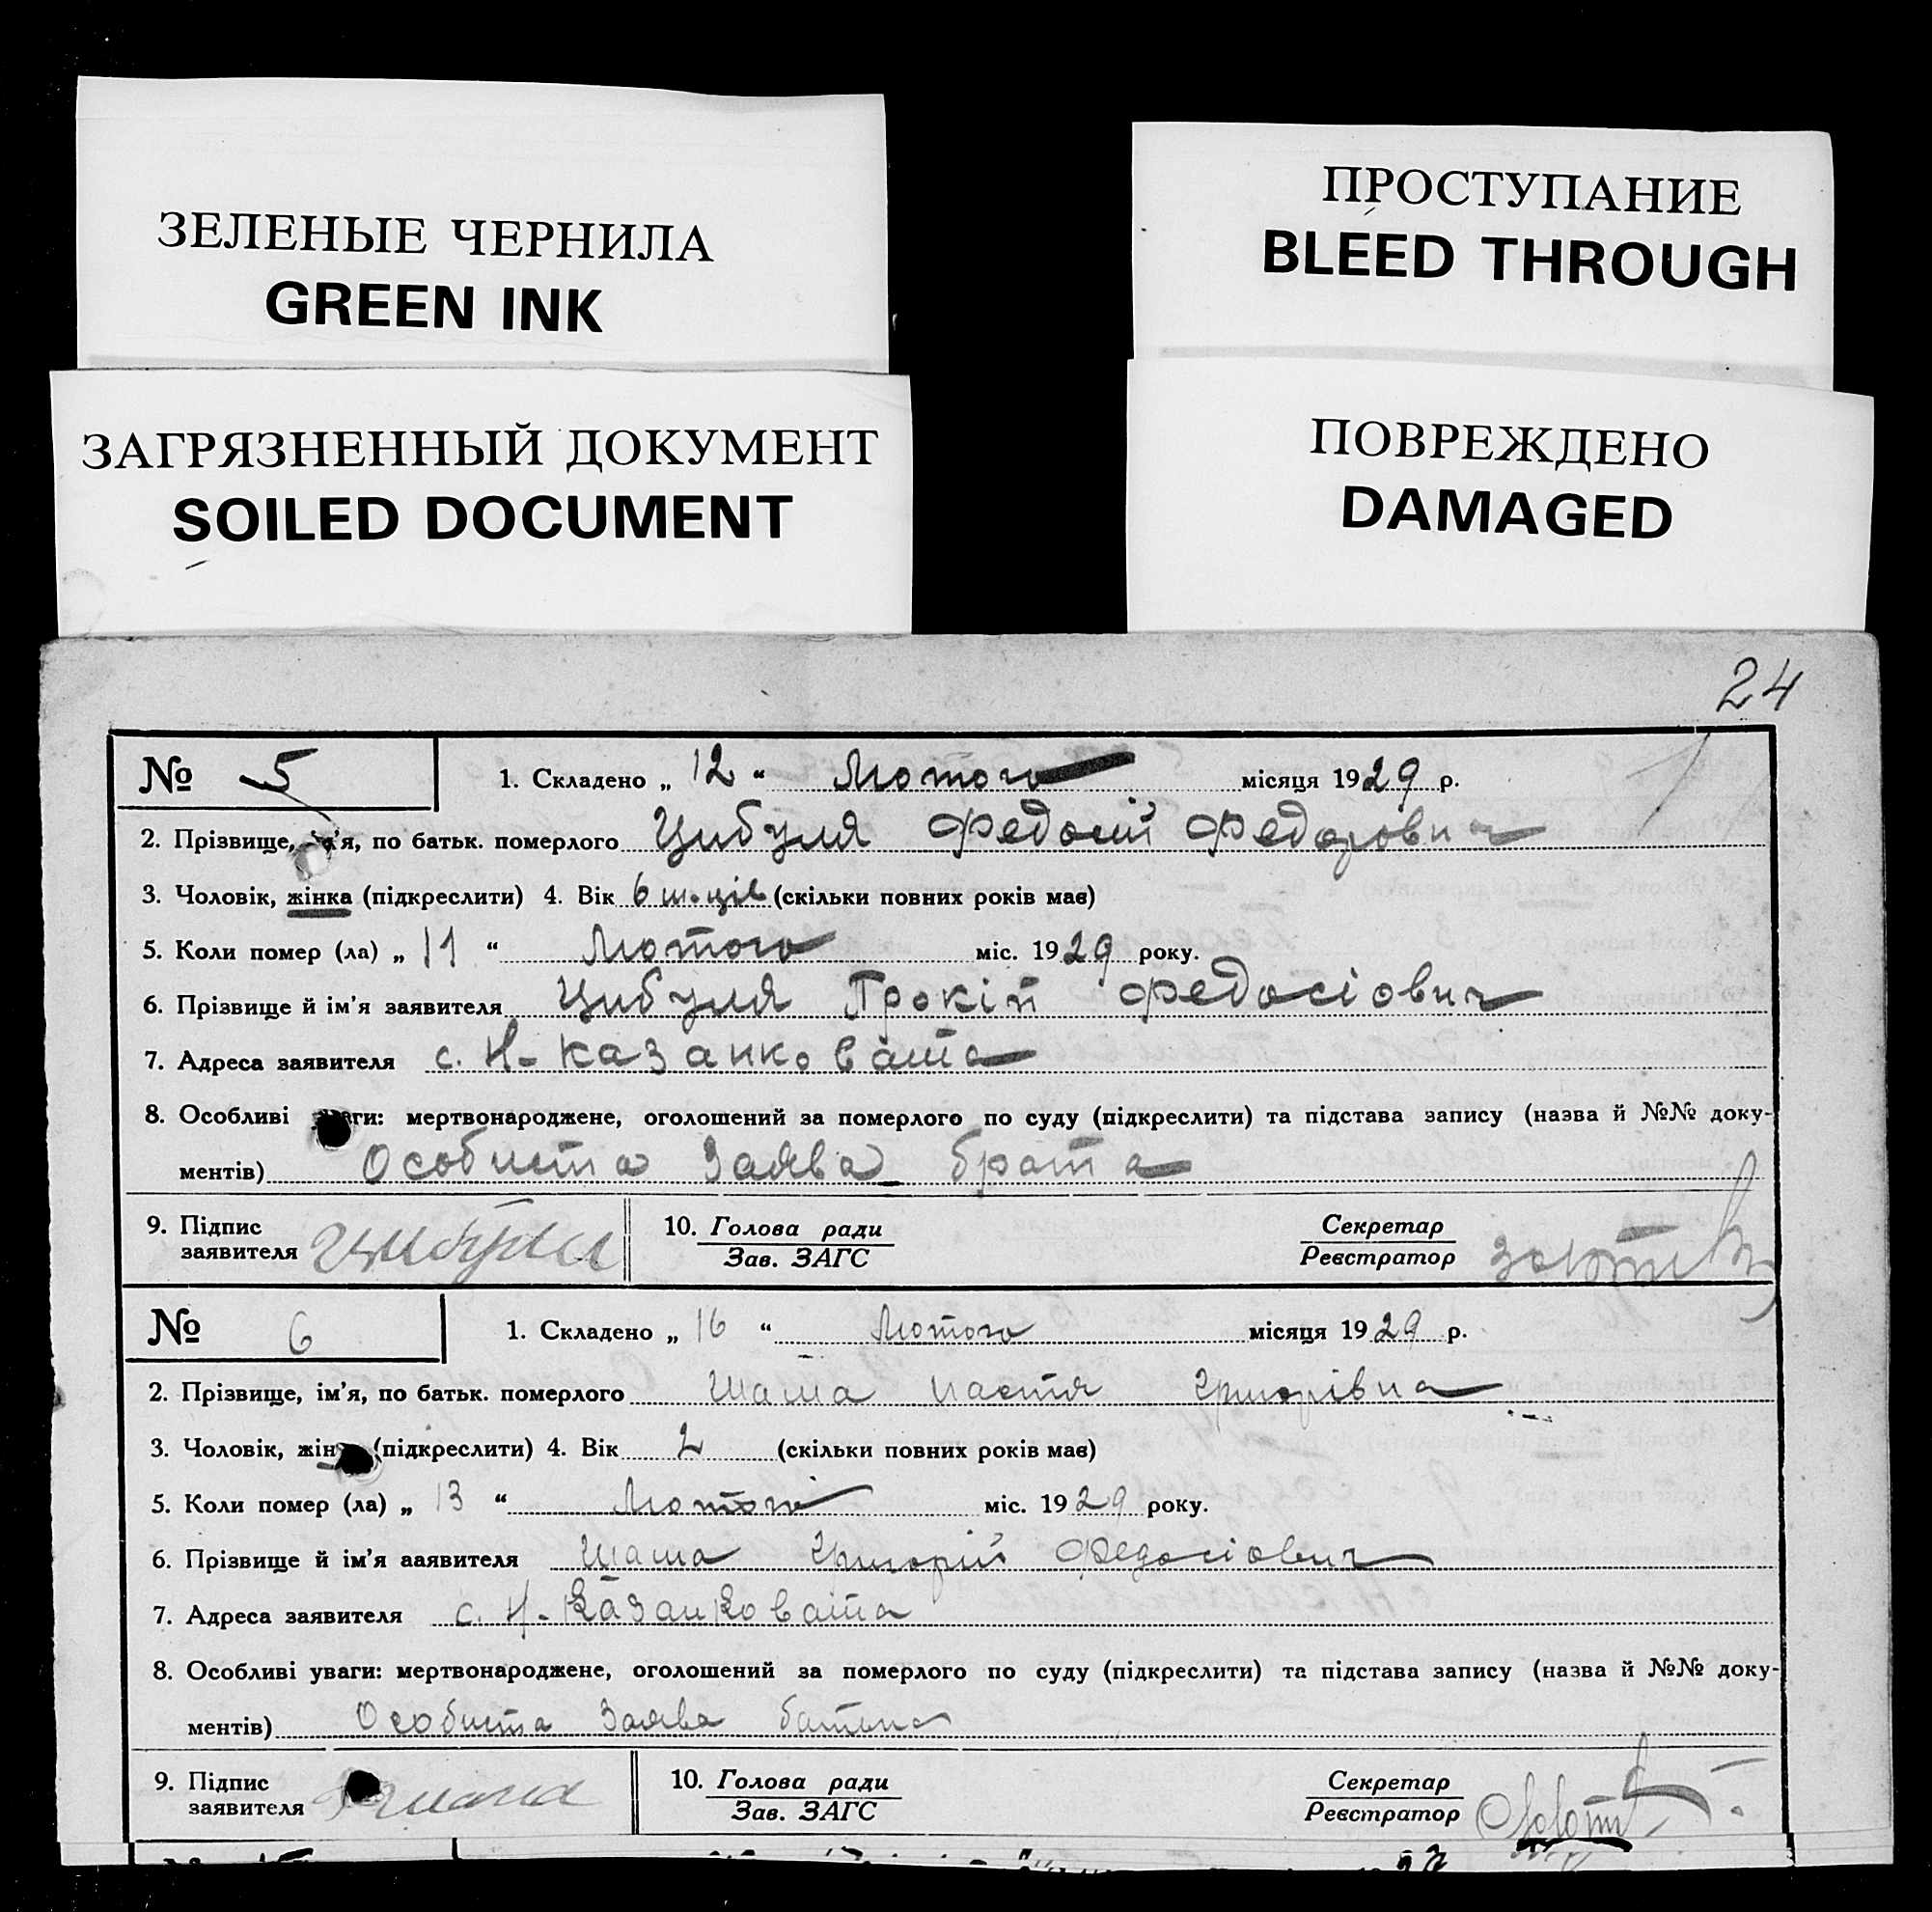 ЗЕЛЕНЫЕ ЧЕРНИЛА
GREEN INK
ПРОСТУПАНИЕ
BLEED THROUGH
ЗАГРЯЗНЕННЫЙ ДОКУМЕНТ
SOILED DOCUMENT
ПОВРЕЖДЕНО
DAMAGED
24
№ 5 1. Складено „ 12 “ Лютого місяця 1929 р.
2. Прізвище, м'я, по батьк. померлого Цибуля Федосій Федорович
3. Чоловік, жінка (підкреслити) 4. Вік 6 (скільки повних років має)
5. Коли помер (ла) „ 11 “ Лютого міс. 1929 року.
6. Прізвище й ім'я заявителя Цибуля Прокіп Федосіович
7. Адреса заявителя с. Н-Казанковата
8. Особливі ги: мертвонароджене, оголошений за померлого по суду (підкреслити) та підстава запису (назва й №№ доку-
ментів) Особиста Заява брата
9. Підпис заявителя 10. Голова ради Секретар
Зав. ЗАГС Реєстратор
№ 6 1. Складено „ 16 “ Лютого місяця 1929 р.
2. Прізвище, ім'я, по батьк. померлого Шаша Настя Григорівна
3. Чоловік, жін (підкреслити) 4. Вік 2 (скільки повних років має)
5. Коли помер (ла) „ 13 “ Лютого міс. 1929 року.
6. Прізвище й ім'я ааявителя Шаша Григорій Федосіович
7. Адреса заявителя с. Н-Казанковата
8. Особливі уваги: мертвонароджене, оголошений за померлого по суду (підкреслити) та підстава запису (назва й №№ доку-
ментів) Особиста Заява батька
9. Підпис заявителя 10. Голова ради Секретар
Зав. ЗАГС Реєстратор